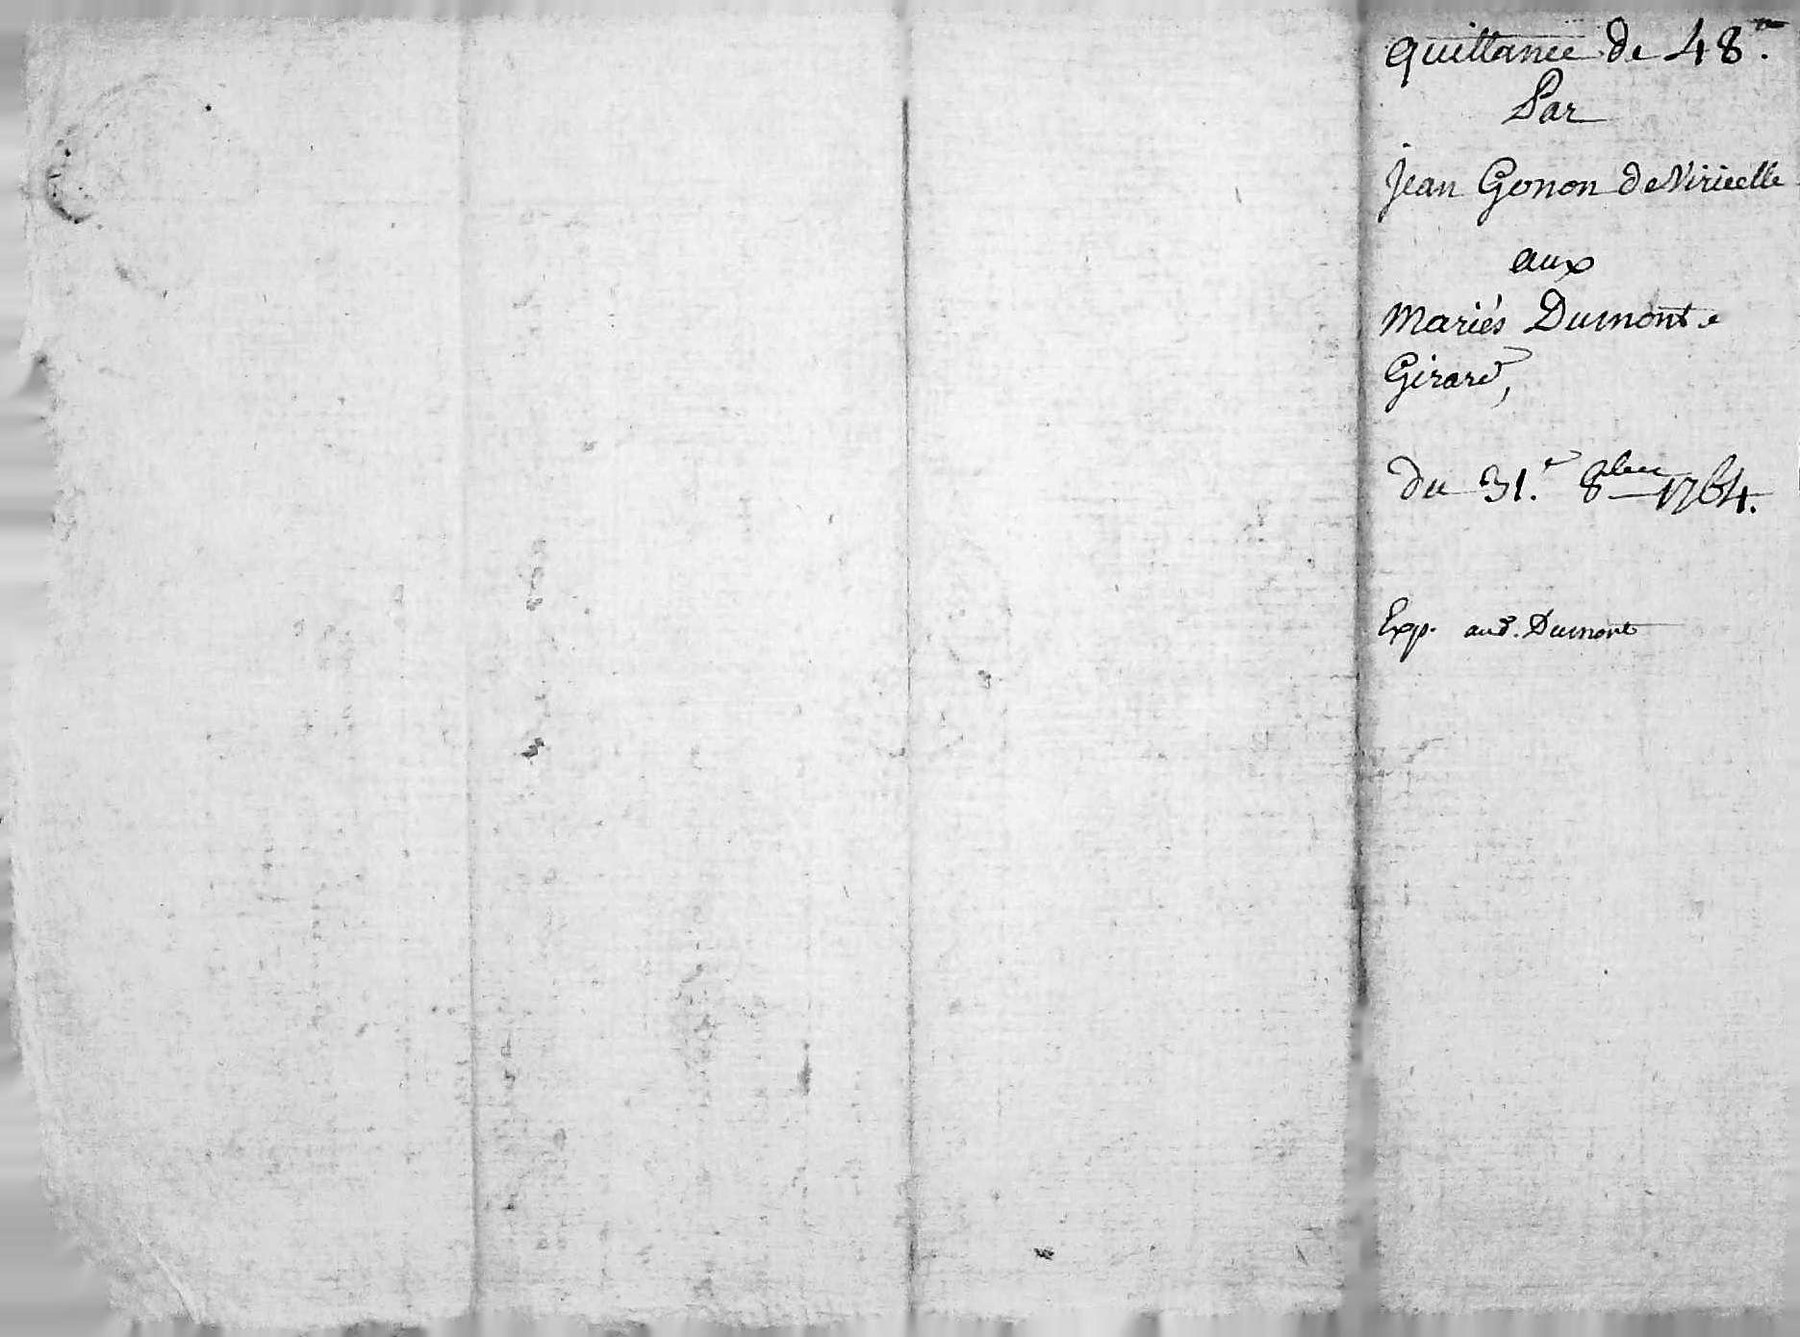 quittance de 48.tt
Par
jean Gonon de Viricelle
aux
Mariés Dumont e
Girard,
Du 31.e 8bre 1764.
Exp. aud. Dumont